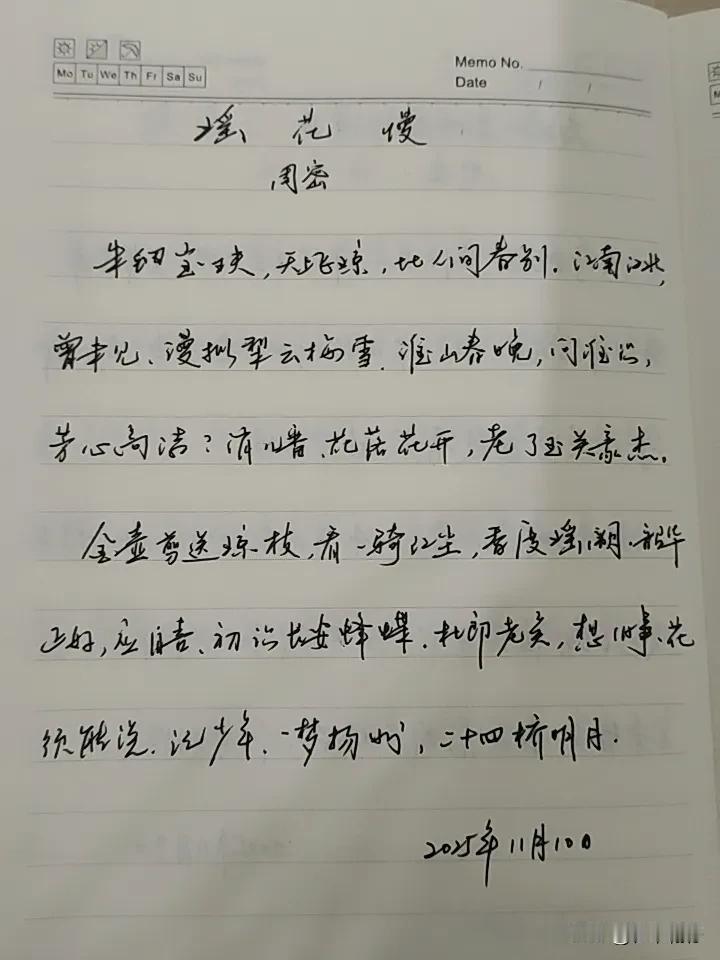 Mo Tu We Th Fr Sa Su
Memo No.
Date / /
瑶花慢
周密
朱钿宝玦,天上飞琼,比人间春别.江南江北,
曾未见、漫拟梨云梅雪.淮山春晚,问谁识,
芳心高洁?消几番、花落花开,老了玉关豪杰.
金壶剪送琼枝,看一骑红尘,香度瑶阙.韶华
正好,应自喜、初识长安蜂蝶.杜郎老矣,想旧事、花
须能说.记少年、一梦扬州,二十四桥明月.
2025年11月10日